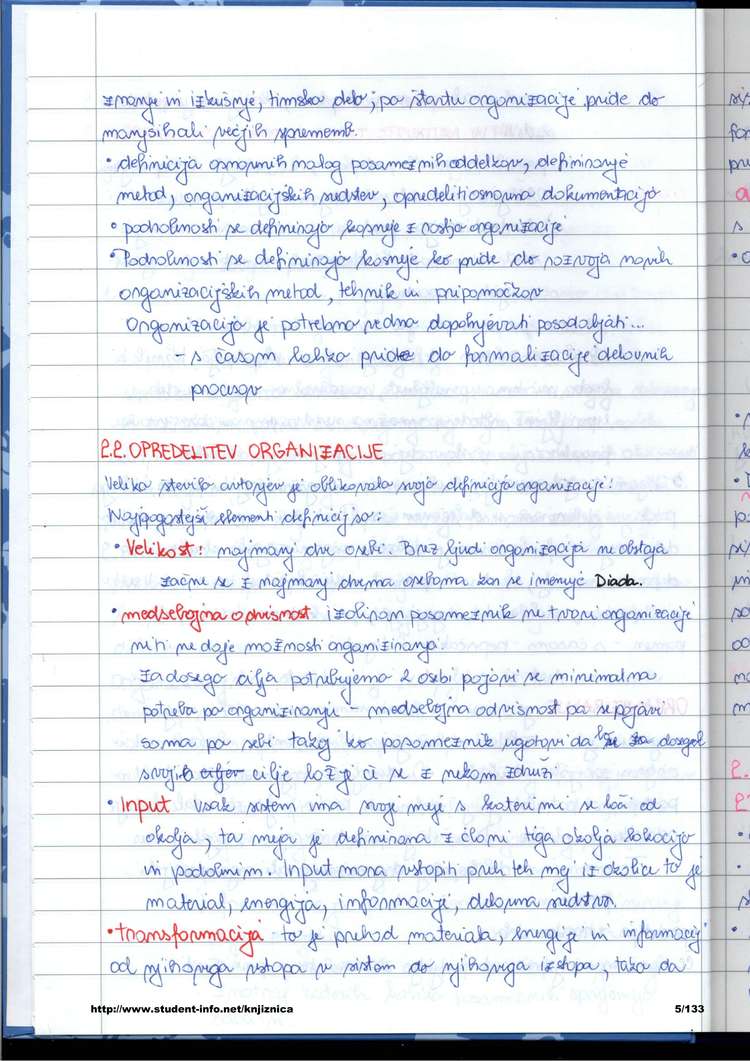 znanje in izkušnje, timsko delo; po štartu organizacije pride do
manjših ali večjih sprememb.
• definicija osnovnih nalog posameznih oddelkov, definiranje
metod, organizacijskih sredstev, opredeliti osnovno dokumentacijo
• podrobnosti se definirajo kasneje z rastjo organizacije
• Podrobnosti se definirajo kasneje ko pride do razvoja novih
organizacijskih metod, tehnik in pripomočkov
Organizacijo je potrebno vedno dopolnjevati posodabljati...
- s časom lahko pride do formalizacije delovnih
procesov
2.2. OPREDELITEV ORGANIZACIJE
Veliko število avtorjev je oblikovalo svojo definicijo organizacije!
Najpogostejši elementi definicij so:
• Velikost: najmanj dve osebi. Brez ljudi organizacija ne obstaja
začne se z najmanj dvema osebama kar se imenuje Diada.
• medsebojna odvisnost izoliran posameznik ne tvori organizacije
niti ne daje možnosti organiziranja
Za dosego cilja potrebujemo 2 osebi pojavi se minimalna
potreba po organiziranju - medsebojna odvisnost pa se pojavi
sama po sebi takoj ko posameznik ugotovi da dosegel
svoje cilje lažje če se z nekom združi
• Input vsak sistem ima svoje meje s katerimi se loči od
okolja, ta meja je definirana z člani tega okolja lokacijo
in podobnim. Input mora vstopiti preko teh mej iz okolice to je
material, energija, informacije, delovna sredstva.
• transformacija - to je prehod materiala, energije in informacij
od njihovega vstopa v sistem do njihovega izstopa, tako da
http://www.student-info.net/knjiznica
5/133